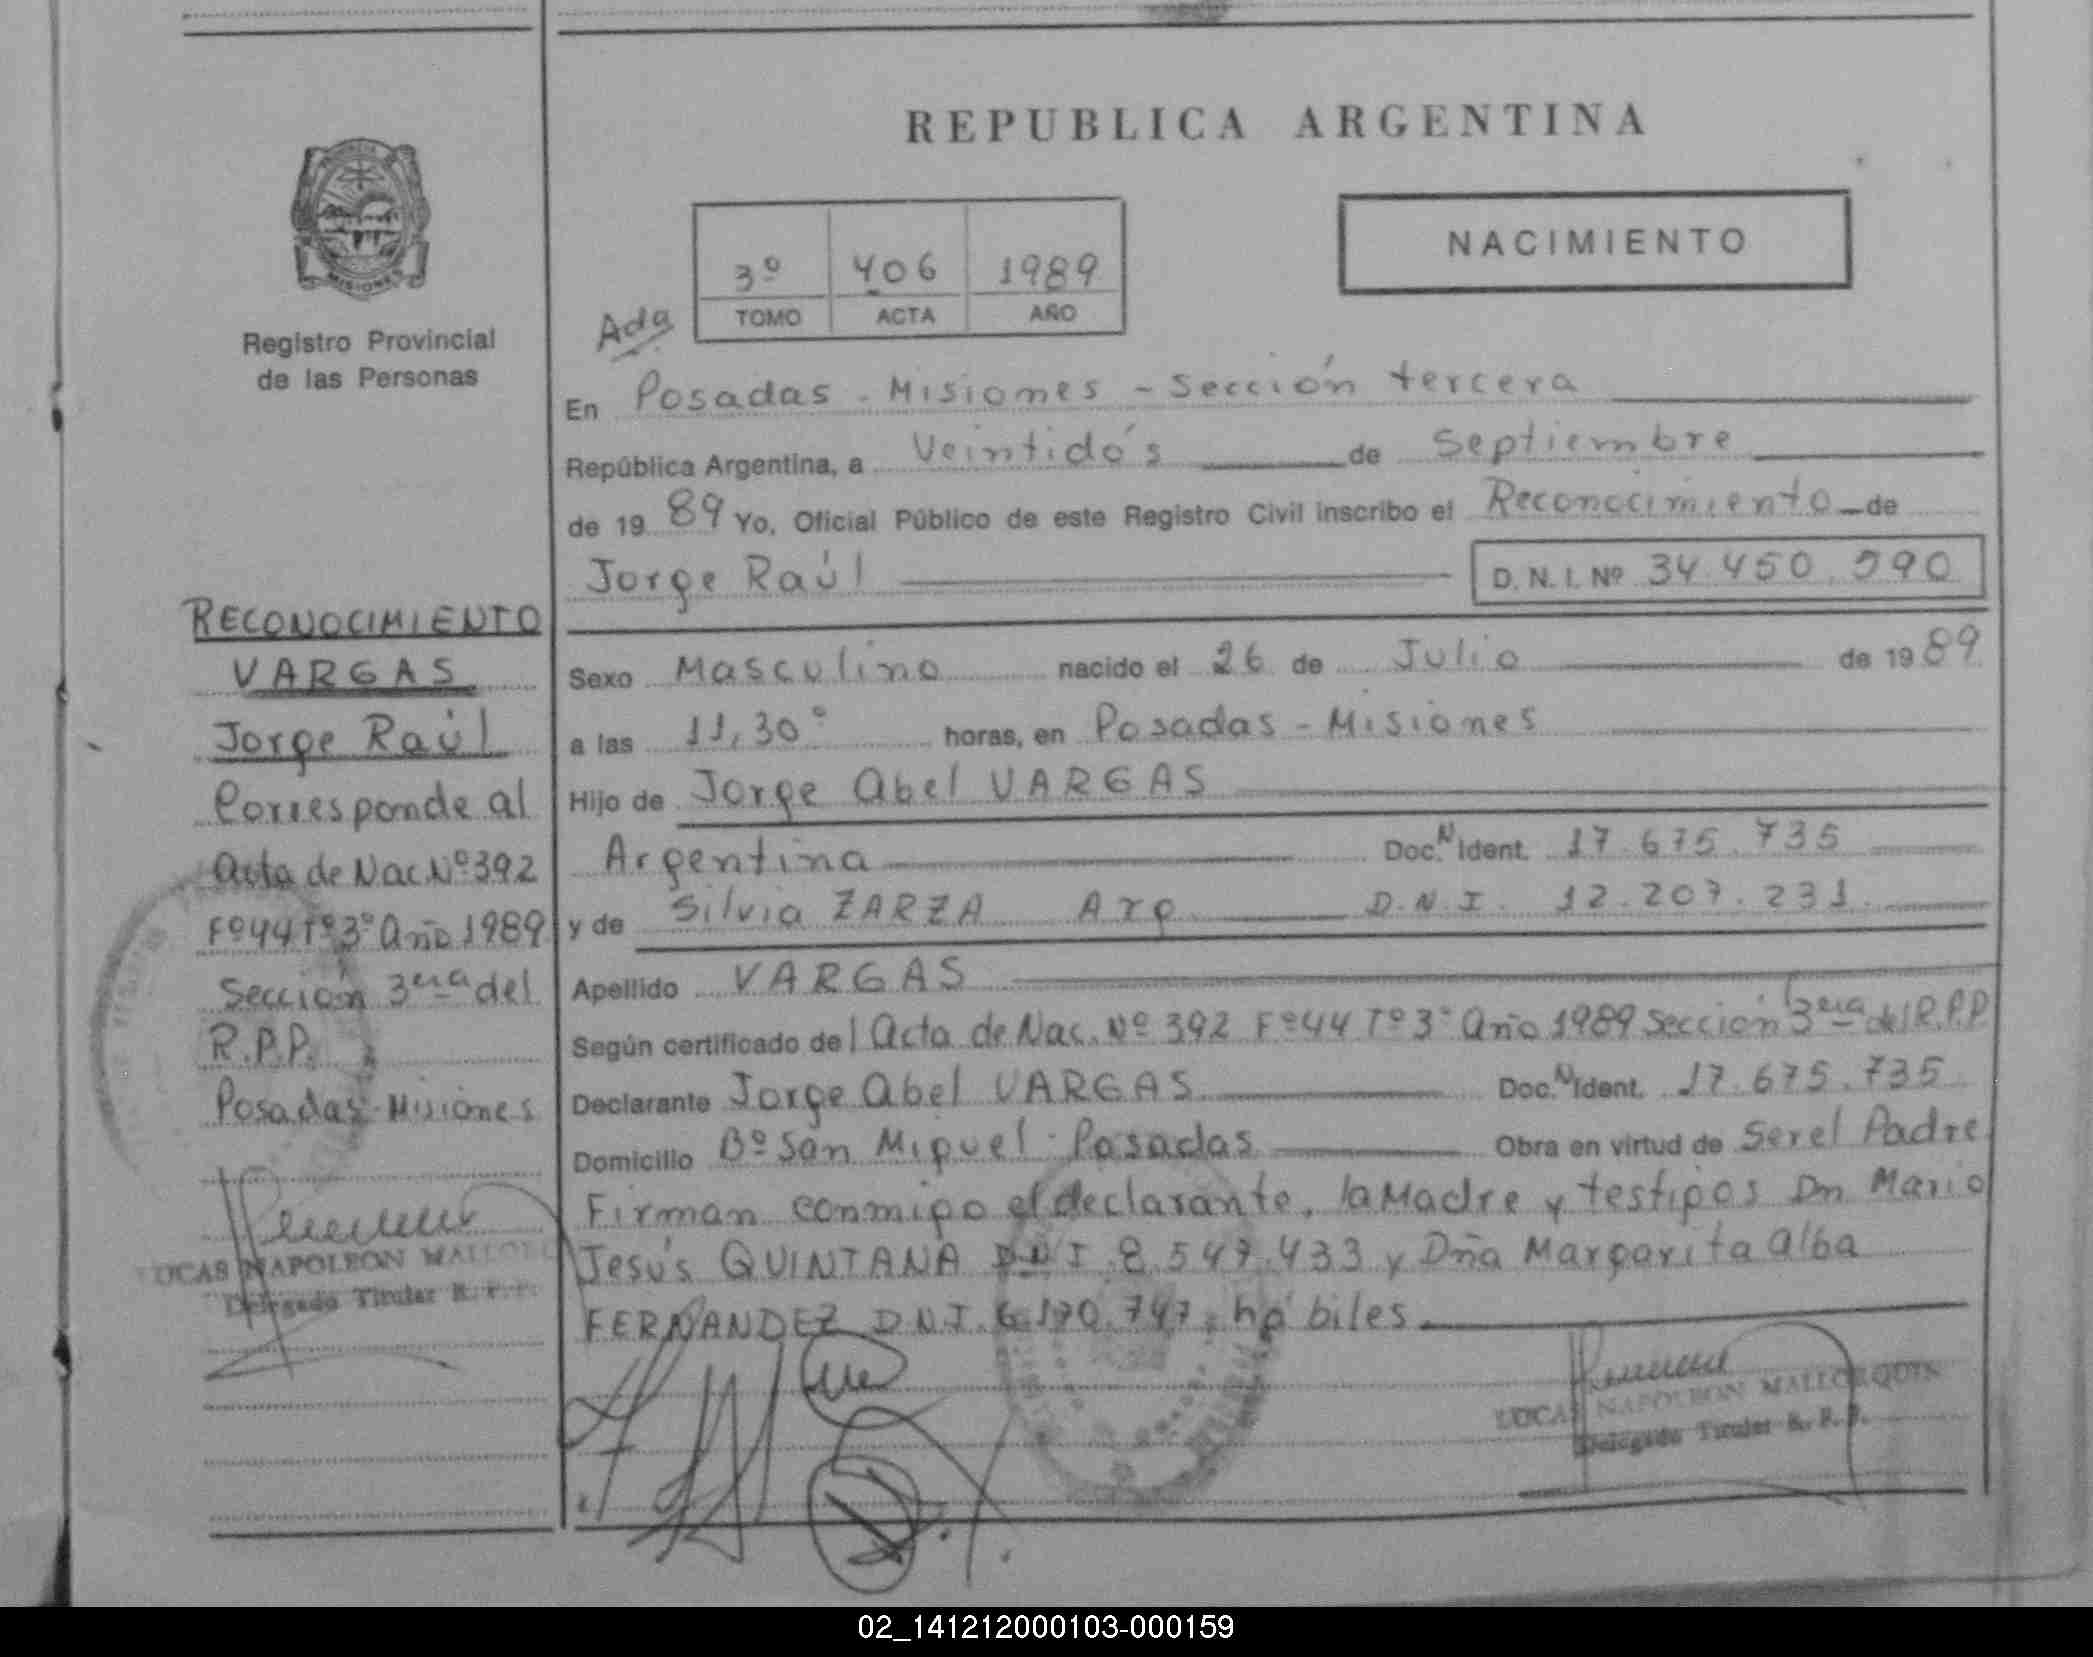 REPUBLICA ARGENTINA
NACIMIENTO
3º 406 1989
TOMO ACTA AÑO
Registro Provincial
de las Personas
En Posadas - Misiones - Sección tercera
República Argentina, a Veintidós de Septiembre
de 1989 Yo, Oficial Público de este Registro Civil inscribo el Reconocimiento de
Jorge Raúl D. N. I. Nº 34.450.590
Sexo Masculino nacido el 26 de Julio de 1989
a las 11,30º horas, en Posadas - Misiones
Hijo de Jorge Abel VARGAS
Argentina Doc. N Ident. 17.675.735
y de Silvia ZARZA Arg D.N.I. 12.207.231
Apellido VARGAS
Según certificado del Acta de Nac. Nº 392 Fº 44 Tº 3º Año 1989 Sección 3era del R.P.P
Declarante Jorge Abel VARGAS Doc. N Ident. 17.675.735
Domicilio Bº San Miguel - Posadas Obra en virtud de Ser el Padre
Firman conmigo el declarante, la Madre y testigos Dn Mario
Jesús QUINTANA DNI 8.547.433 y Dña Margarita Alba
FERNANDEZ D.N.I. 6.170.747, hábiles
LUCAS NAPOLEON MALLORQUIN
Delegado Titular R. P. P.
RECONOCIMIENTO
VARGAS
Jorge Raúl
Corresponde al
Acta de Nac. Nº 392
Fº 44 Tº 3º Año 1989
Sección 3era del
R.P.P.
Posadas - Misiones
LUCAS NAPOLEON MALLORQUIN
Delegado Titular R. P. P.
02_141212000103-000159